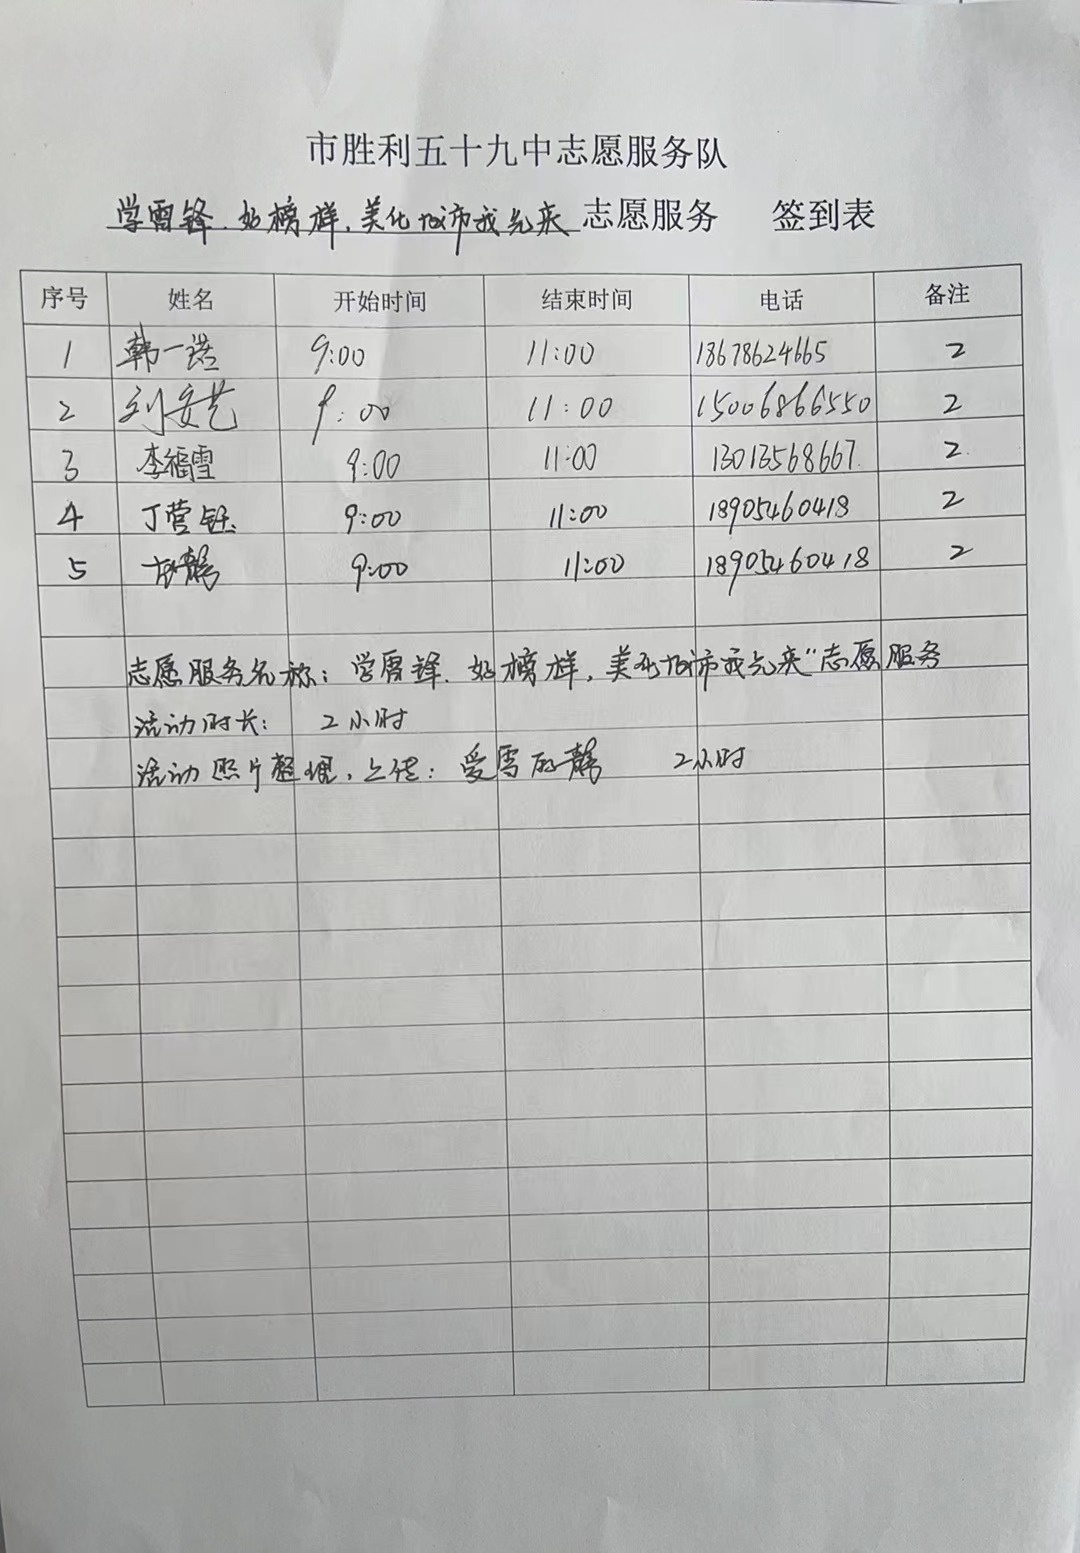 市胜利五十九中志愿服务队
学雷锋.好榜样,美化城市我先来 志愿服务 签到表
序号 姓名 开始时间 结束时间 电话 备注
1 韩一诺 9:00 11:00 18678624665 2
2 刘安艺 9:00 11:00 15006866550 2
3 李福雪 9:00 11:00 13013568667 2
4 丁营钰 9:00 11:00 18905460418 2
5 9:00 11:00 18905460418 2
志愿服务名称: 学雷锋.好榜样,美化城市我先来"志愿服务
活动时长: 2小时
活动照片整理、上传: 2小时